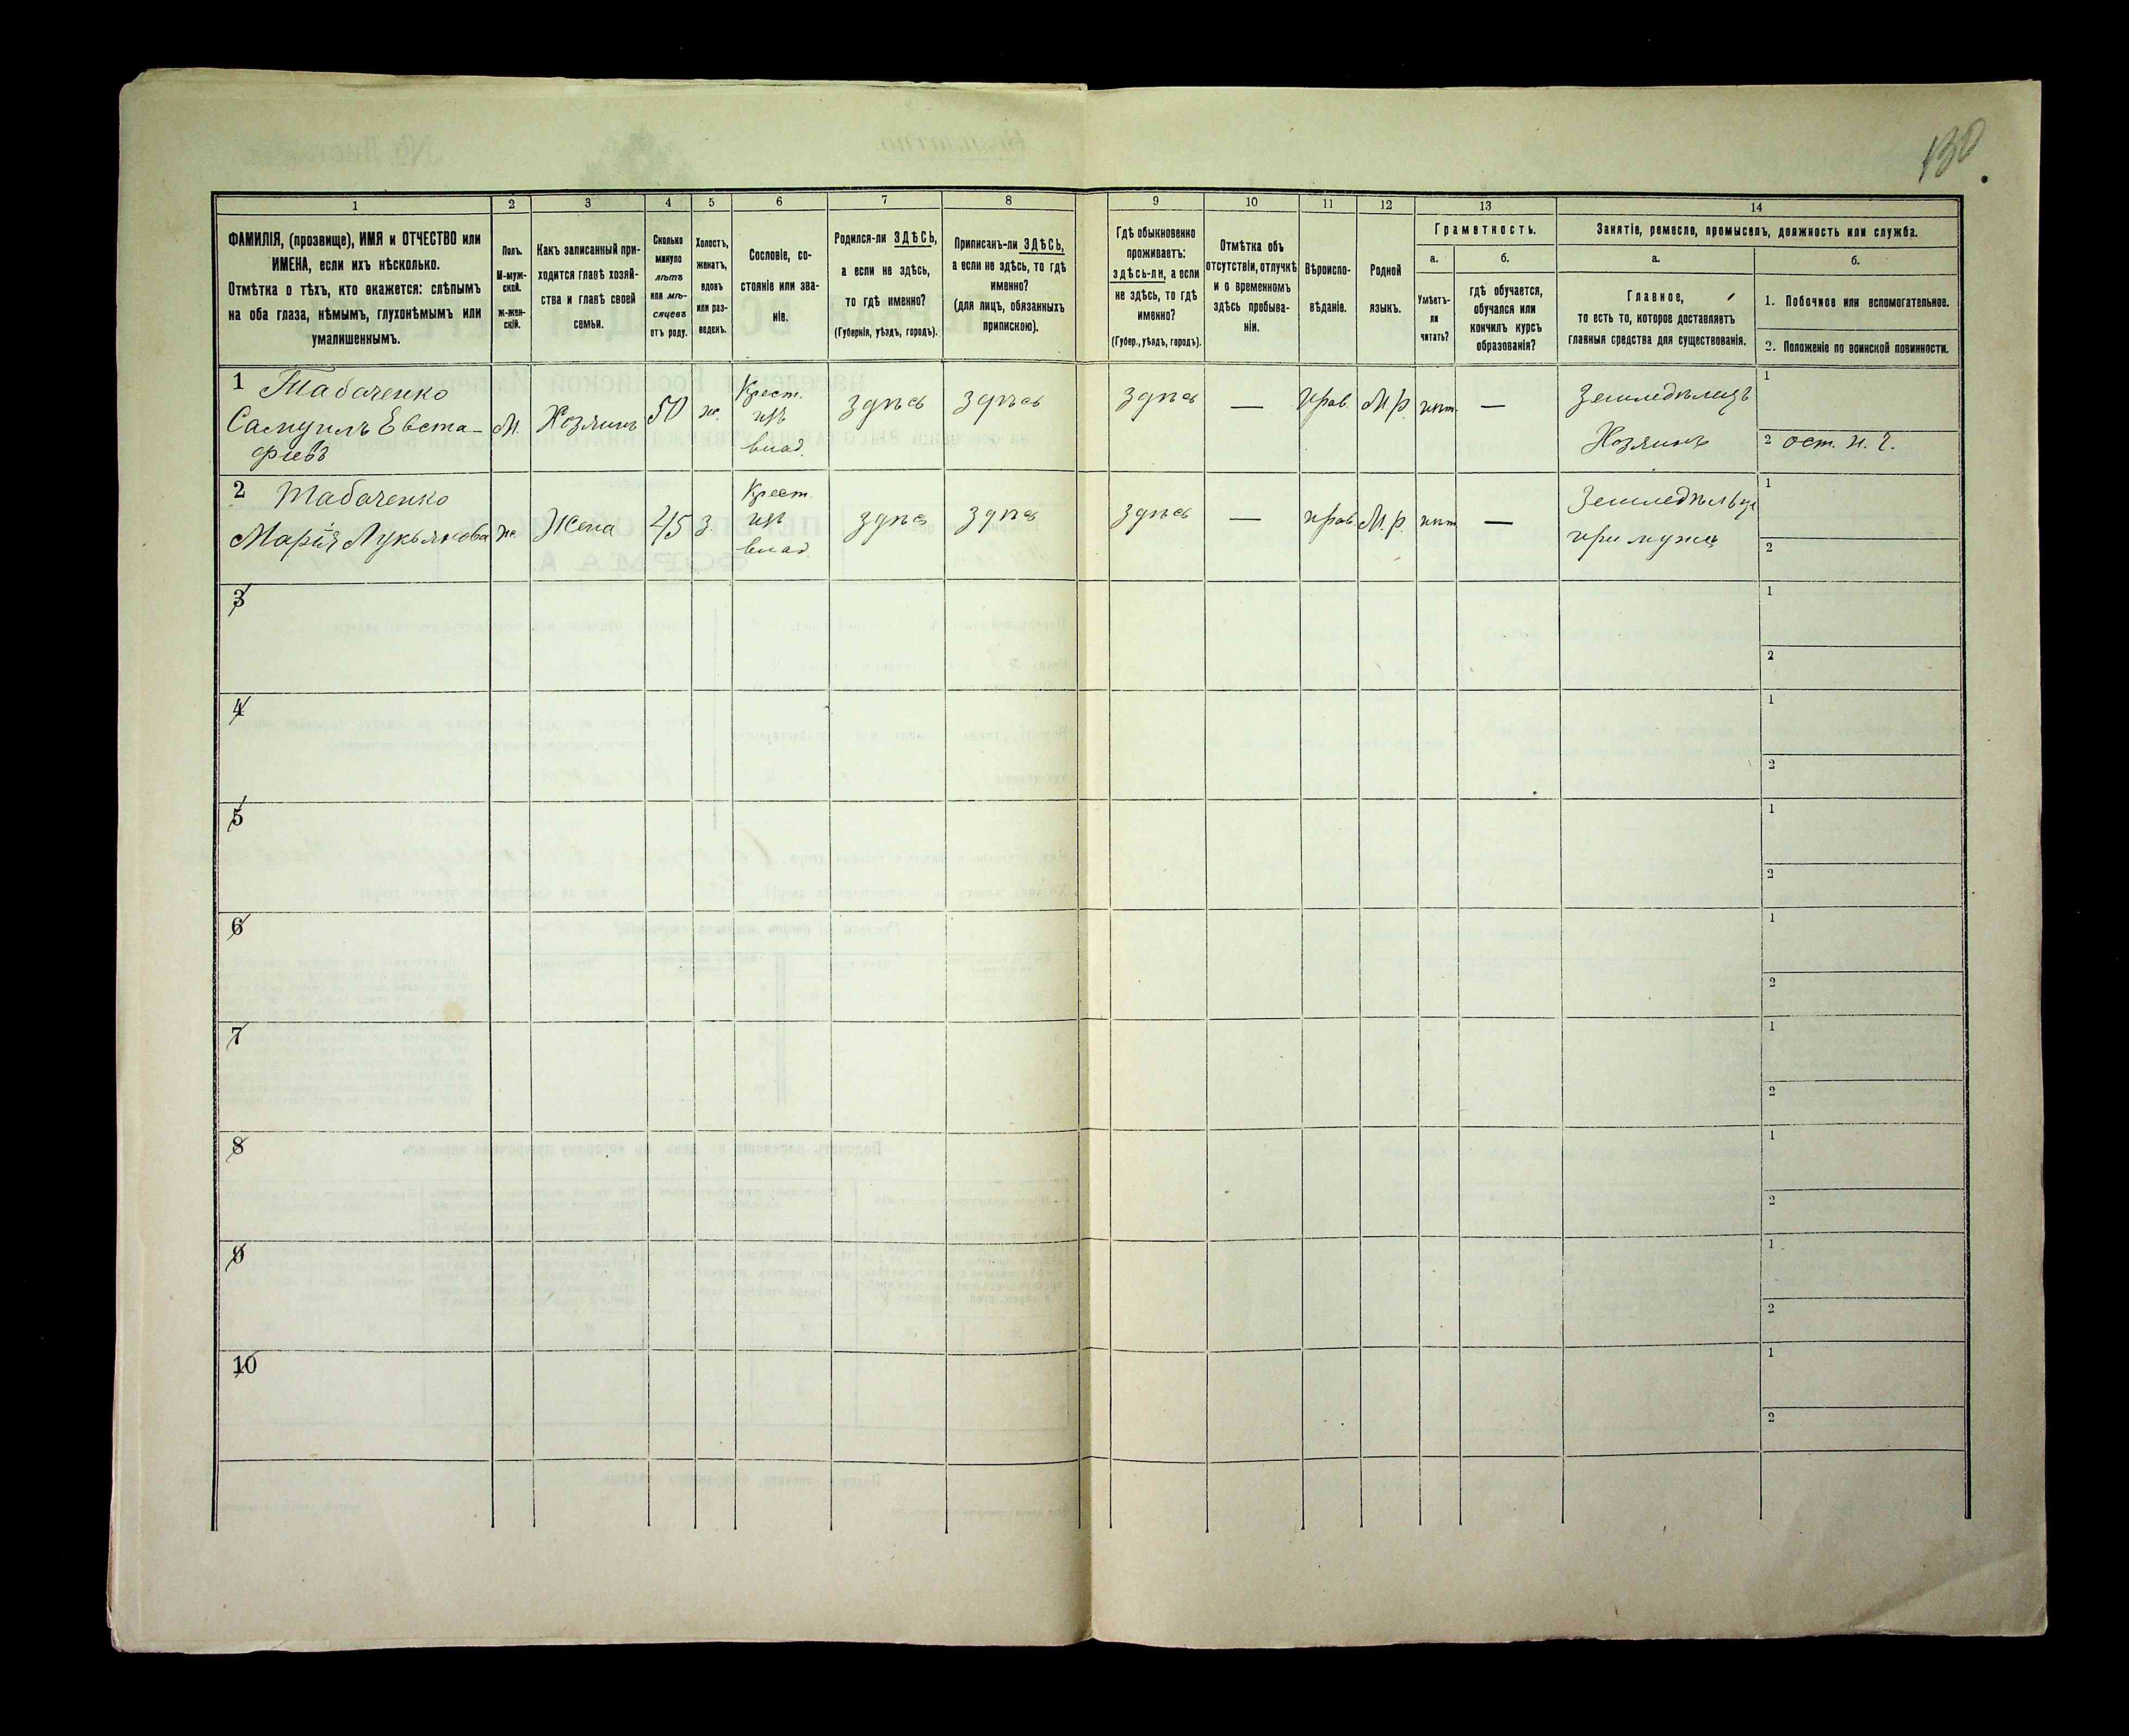 130
1
2
3
4
5
6
7
8
9
10
11
12
13
14
ФАМИЛІЯ, (прозвище), ИМЯ и ОТЧЕСТВО или
ИМЕНА, если ихъ нѣсколько.
Отмѣтка о тѣхъ, кто окажется: слѣпымъ
на оба глаза, нѣмымъ, глухонѣмымъ или
умалишеннымъ.
Полъ.
М-муж-
ской.
ж-жен-
скій.
Какъ записанный при-
ходится главѣ хозяй-
ства и главѣ своей
семьи.
Сколько
минуло
лѣтъ
или мѣ-
сяцевъ
отъ роду.
Холостъ,
женатъ,
вдовъ
или раз-
веденъ.
Сословіе, со-
стояніе или зва-
ніе.
Родился-ли ЗДѢСЬ,
а если не здѣсь,
то гдѣ именно?
(Губернія, уѣздъ, городъ).
Приписанъ-ли ЗДѢСЬ,
а если не здѣсь, то гдѣ
именно?
(для лицъ, обязанныхъ
припискою).
Гдѣ обыкновенно
проживаетъ:
здѣсь-ли, а если
не здѣсь, то гдѣ
именно?
(Губер., уѣздъ, городъ).
Отмѣтка объ
отсутствіи, отлучкѣ
и о временномъ
здѣсь пребыва-
ніи.
Вѣроиспо-
вѣданіе.
Родной
языкъ.
Грамотность.
а.
Умѣетъ-
ли
читать?
б.
гдѣ обучается,
обучался или
кончилъ курсъ
образованія?
Занятіе, ремесло, промыселъ, должность или служба.
а.
Главное,
то есть то, которое доставляетъ
главныя средства для существованія.
б.
1. Побочное или вспомогательное.
2. Положеніе по воинской повинности.
1 Табаченко
Самуилъ Евста-
фіевъ
М.
Хозяинъ
50
ж.
Крест.
изъ
влад.
здѣсь
здѣсь
здѣсь
—
прав.
М.р.
нѣт.
—
Земледѣлецъ
Хозяинъ
1
2 ост. н. ч.
2 Табаченко
Марія Лукьянова
ж.
Жена
45
з.
Крест.
изъ
влад.
здѣсь
здѣсь
здѣсь
—
прав.
М.р.
нѣт.
—
при мужѣ
1
2
3
1
2
4
1
2
5
1
2
6
1
2
7
1
2
8
1
2
9
1
2
10
1
2